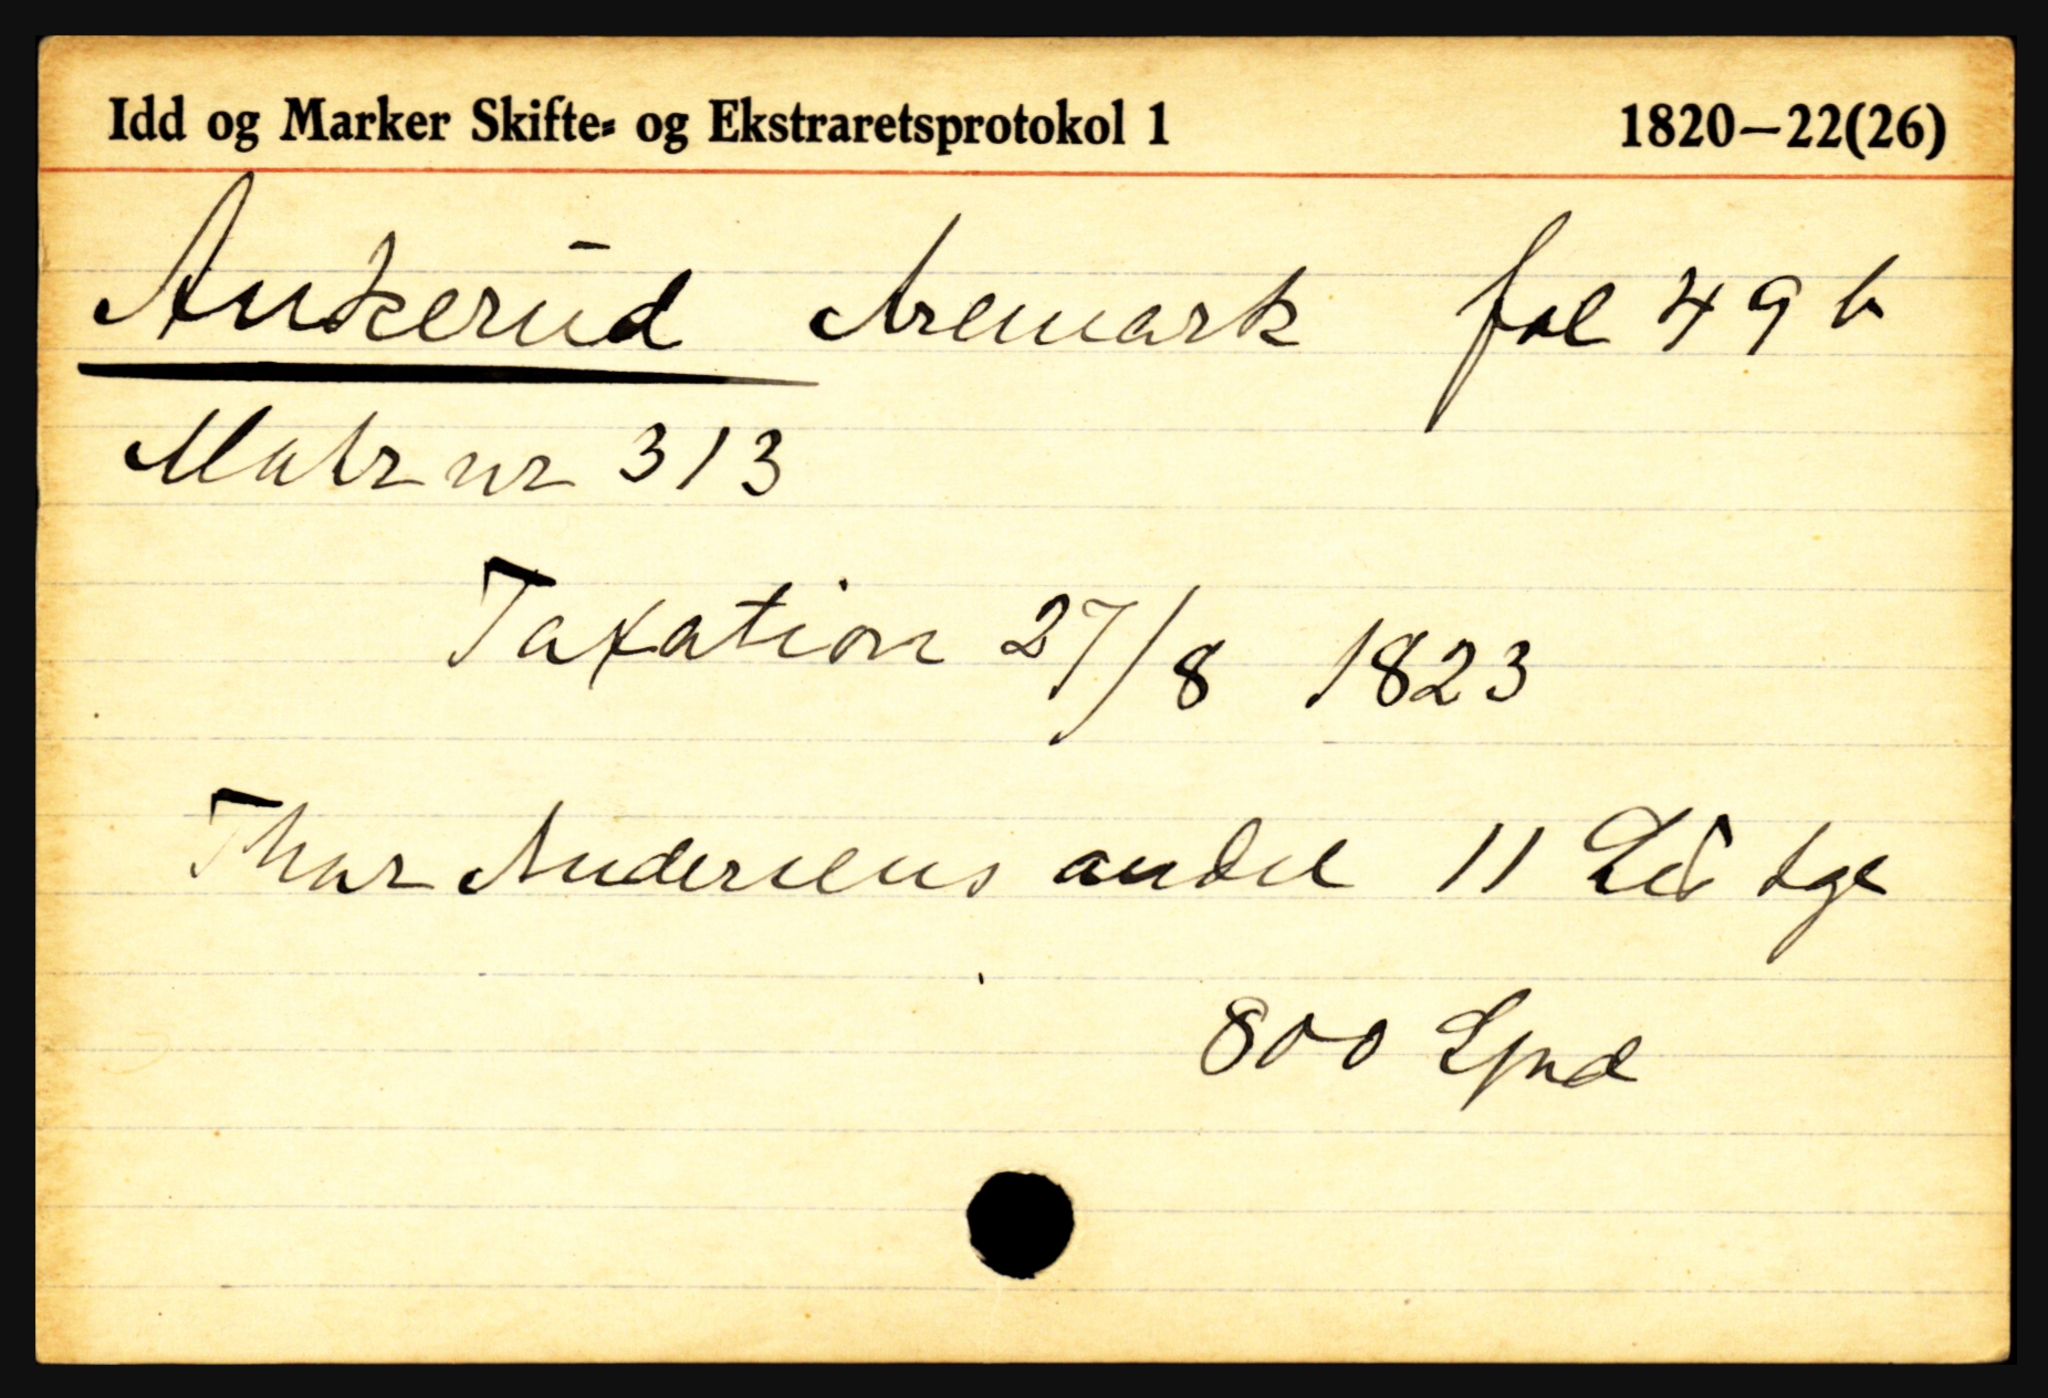 Idd og Marker Skifte- og Ekstraretsprotokol 1 1820—22(26)
Ankerud Aremark fol 49 b
Matr nr 313
Taxation 27/8 1823
Thor Andersens andel 11 tge
800 Spd